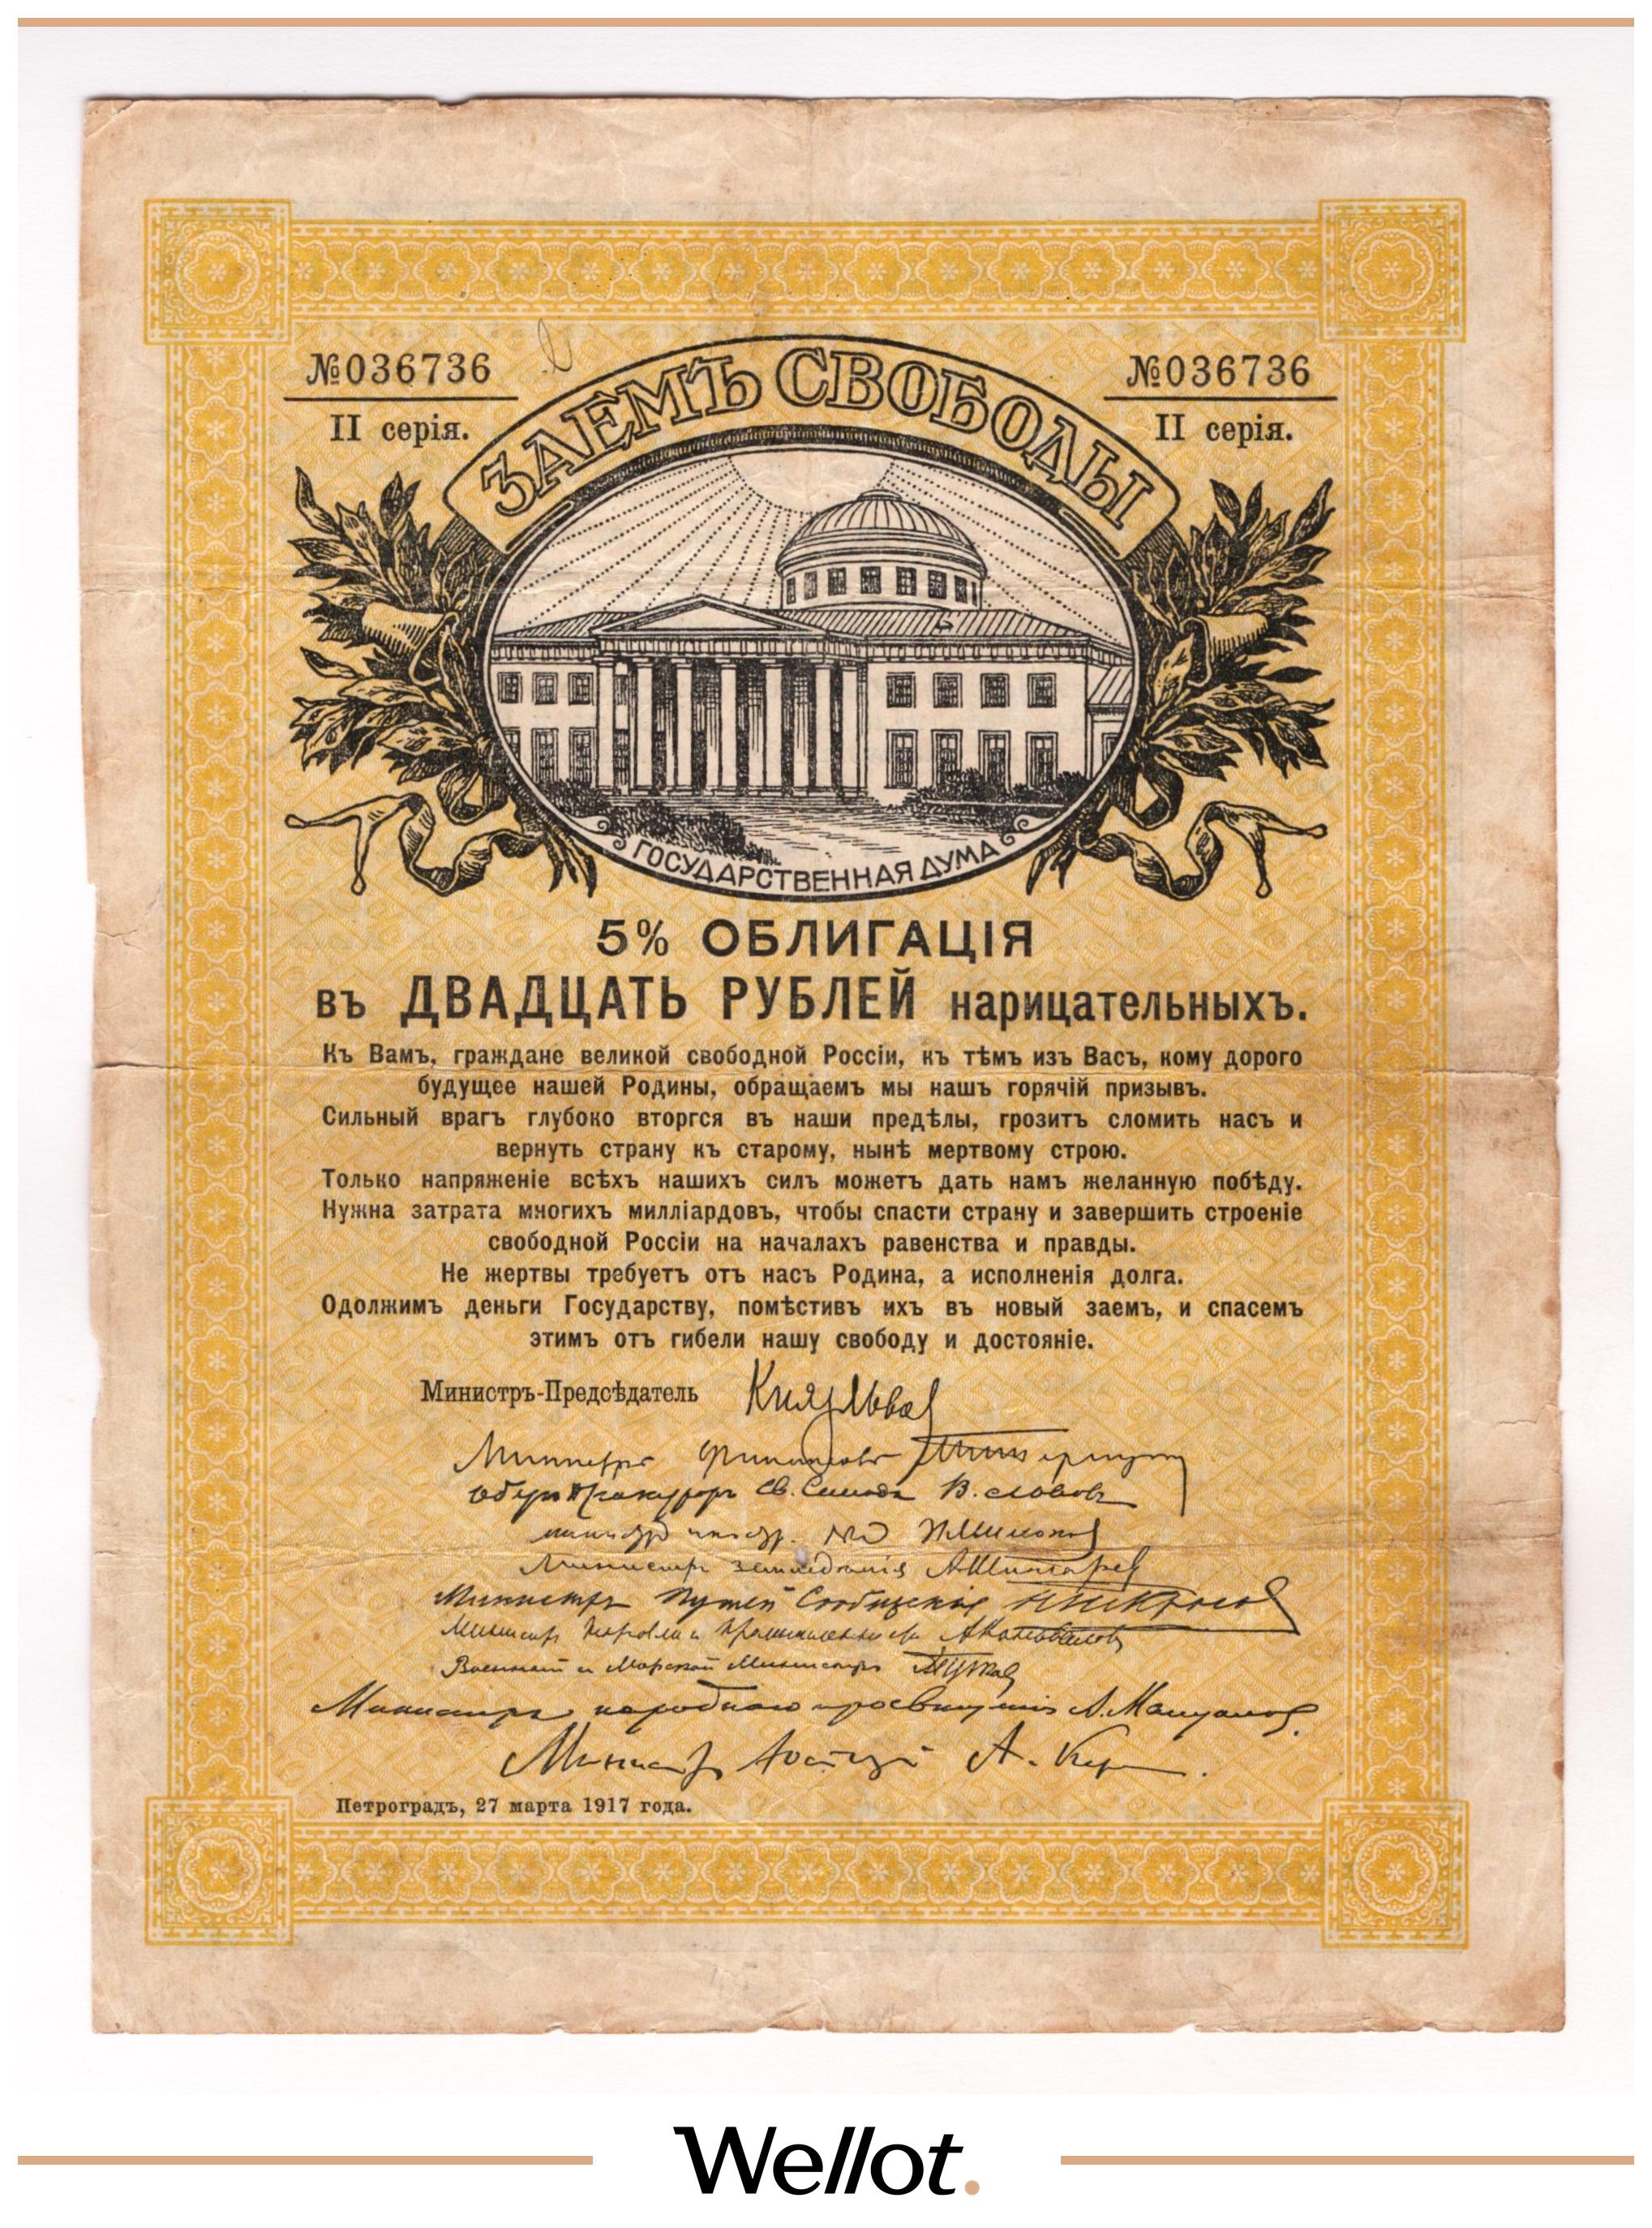 №036736
№036736
II серія.
II серія.
ЗАЕМЪ СВОБОДЫ
ГОСУДАРСТВЕННАЯ ДУМА
5% ОБЛИГАЦІЯ
въ ДВАДЦАТЬ РУБЛЕЙ нарицательныхъ.
Къ Вамъ, граждане великой свободной Россіи, къ тѣмъ изъ Васъ, кому дорого
будущее нашей Родины, обращаемъ мы нашъ горячій призывъ.
Сильный врагъ глубоко вторгся въ наши предѣлы, грозитъ сломить насъ и
вернуть страну къ старому, нынѣ мертвому строю.
Только напряженіе всѣхъ нашихъ силъ можетъ дать намъ желанную побѣду.
Нужна затрата многихъ милліардовъ, чтобы спасти страну и завершить строеніе
свободной Россіи на началахъ равенства и правды.
Не жертвы требуетъ отъ насъ Родина, а исполненія долга.
Одолжимъ деньги Государству, помѣстивъ ихъ въ новый заемъ, и спасемъ
этимъ отъ гибели нашу свободу и достояніе.
Министръ-Предсѣдатель Князь Львов
Министръ Финансовъ
Оберъ Прокуроръ Св. Синода В. Львовъ
Министръ земледѣлія А. Шингарев
Министръ Путей Сообщенія Н. Некрасов
Министръ Торговли и Промышленности А. Коноваловъ
Военный и Морской Министръ А. Гучков
Министръ народнаго просвѣщенія А. Мануилов.
Министр Юстиціи А. Кер
Петроградъ, 27 марта 1917 года.
Wellot.